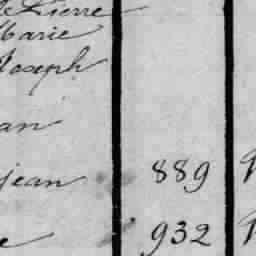 de Pierre
Marie
Joseph
an
jean 889
e 932